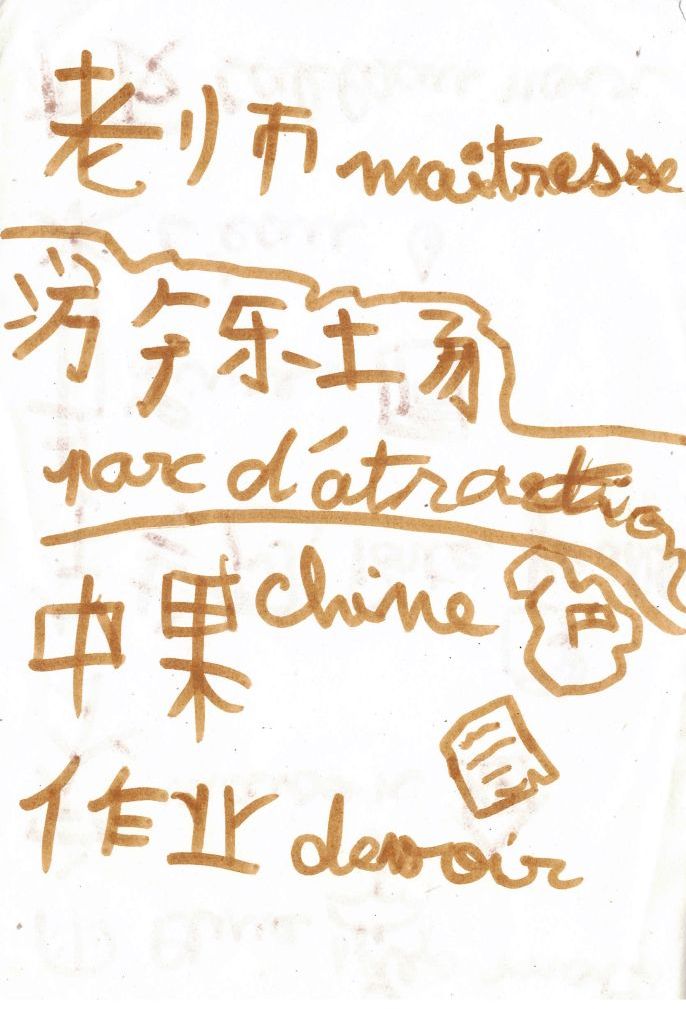 老师 maitresse
游乐场
parc d'atraction
中果 Chine
作业 devoir